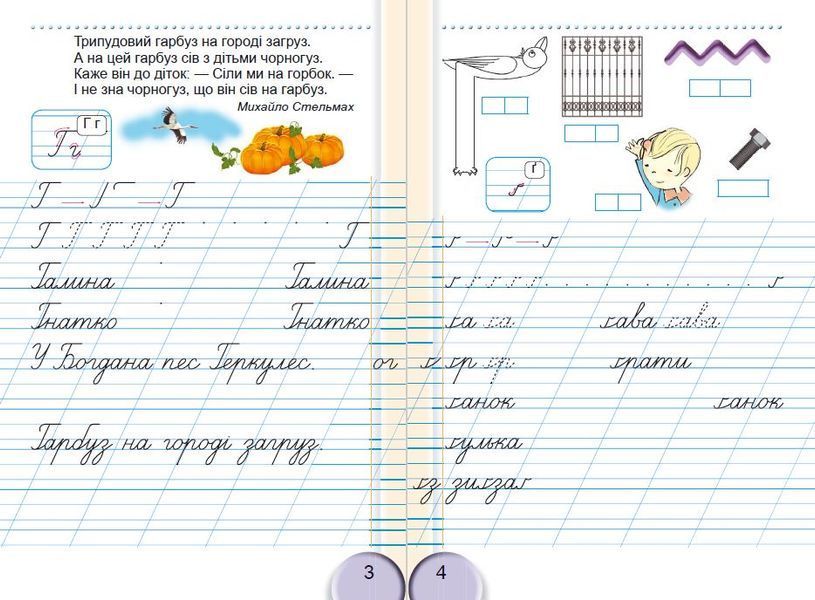 Трипудовий гарбуз на городі загруз.
А на цей гарбуз сів з дітьми чорногуз.
Каже він до діток: — Сіли ми на горбок. —
І не зна чорногуз, що він сів на гарбуз.
Михайло Стельмах
Г г
Г г
Г Г Г
Г Г Г Г Г Г
Галина Галина
Гнатко Гнатко
У Богдана пес Геркулес. ог
Гарбуз на городі загруз.
3
ґ
ґ
ґ ґ ґ
ґ ґ ґ ґ ґ ґ
ґа ґа ґава ґава
ґ ґр ґр ґрати
ґанок ґанок
ґулька
ґз зиґзаґ
4